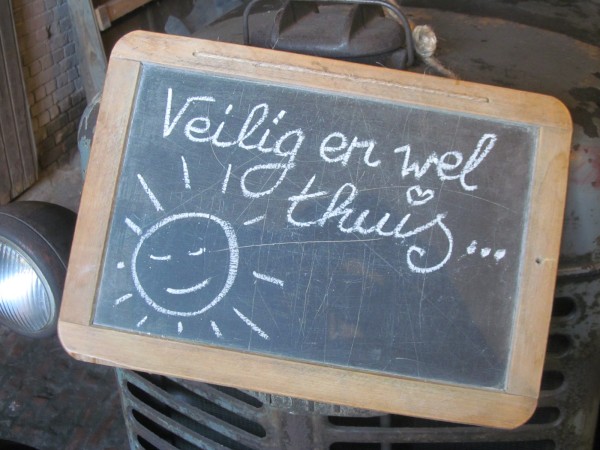 Veilig en wel
thuis...